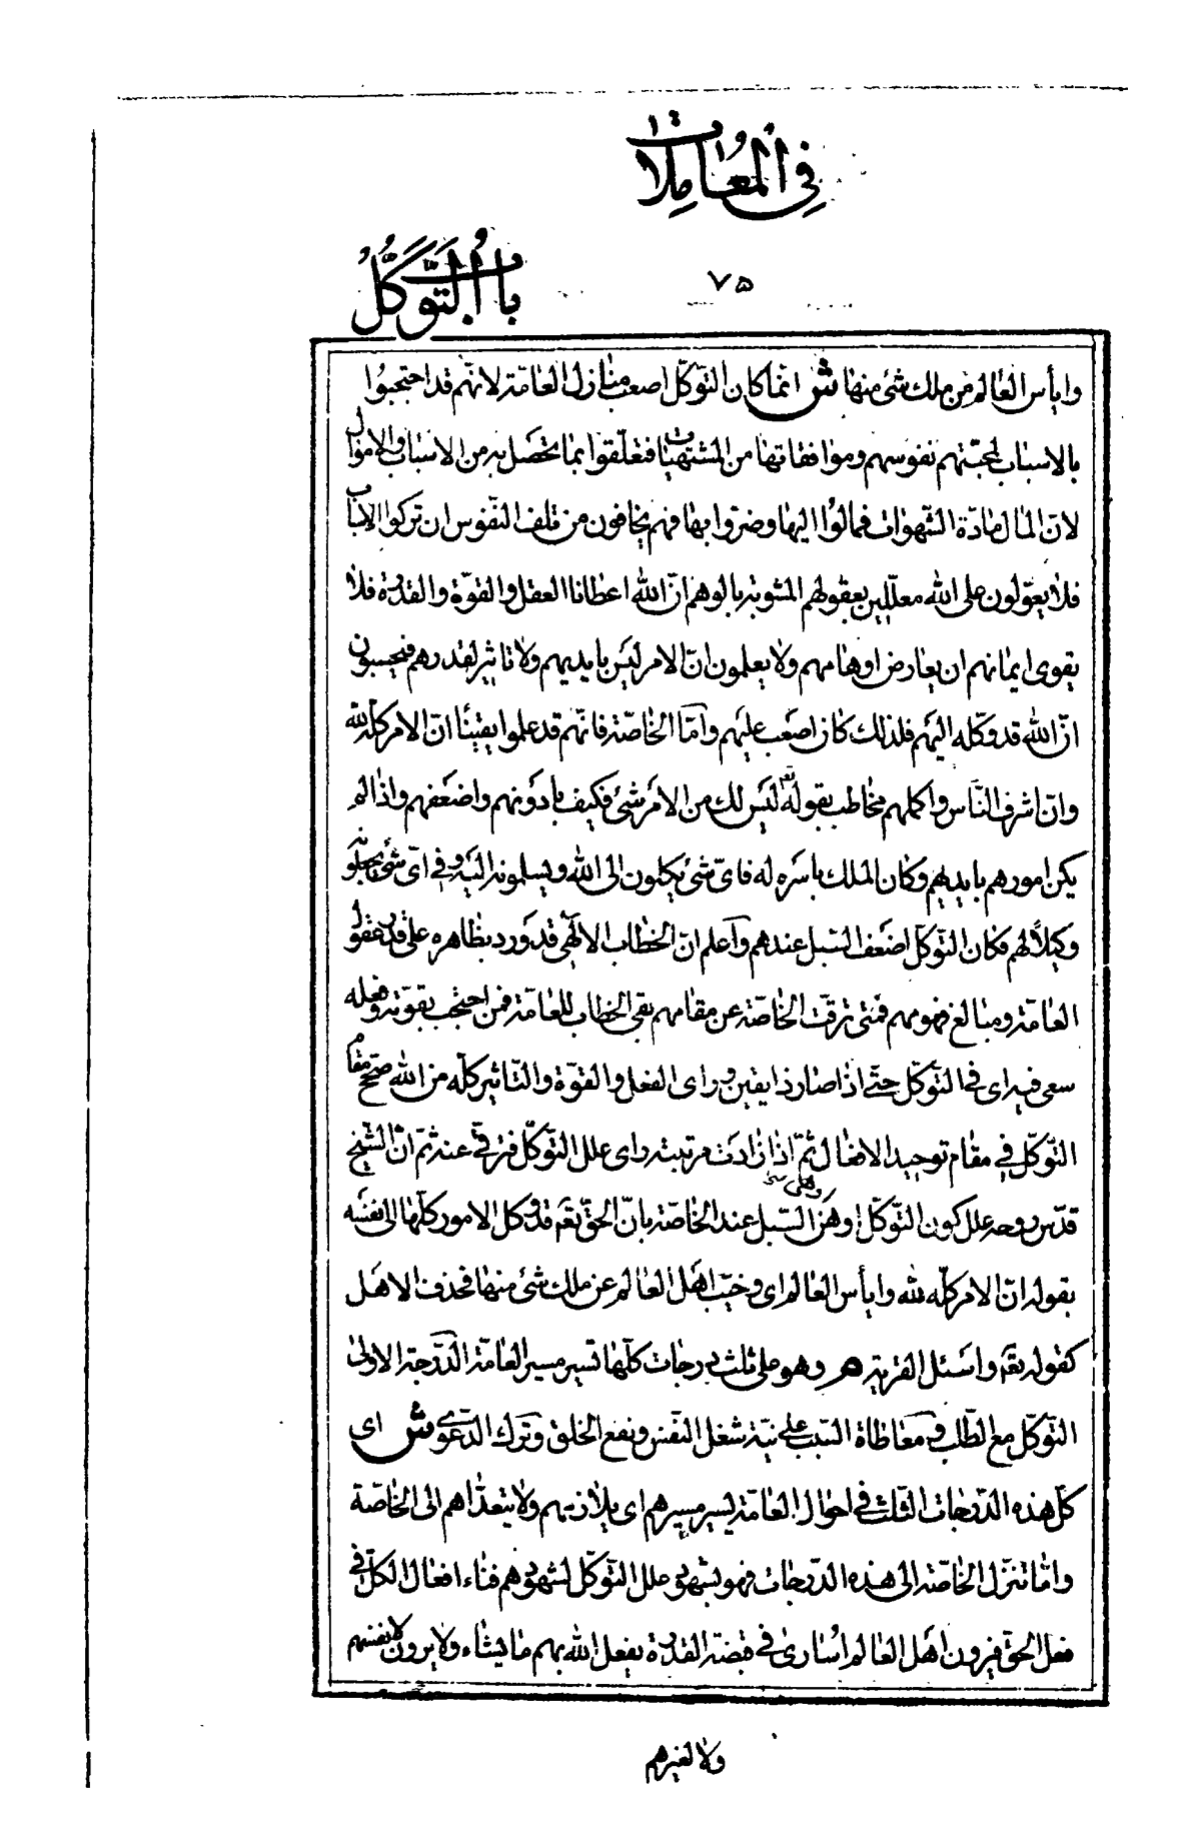 في المعاملات
باب التوكل
٧۵
وايأس العالم من ملك شئ منها ش انّما كان التوكّل اصعب منازل العامّة لانّهم قد احتجبوا
بالاسباب لمحبّتهم نفوسهم وموافقاتها من المشتهيات فتعلّقوا بما يحصل به من الاسباب والاموال
لانّ المال مادّة الشهوات فمالوا اليها وضروا بها فهم يخافون من تلف النفوس ان تركوا الاسباب
فلا يعوّلون على الله معلّلين بعقولهم المشوبة بالوهم انّ الله اعطانا العقل والقوّة والقدرة فلا
يقوى ايمانهم ان يعارض اوهامهم ولا يعلمون انّ الامر ليس بايديهم ولا تاثير لقدرهم فيحسبون
انّ الله قد وكّله اليهم فلذلك كان اصعب عليهم وامّا الخاصّة فانّهم قد علموا يقينًا انّ الامر كلّه لله
وانّ اشرف النّاس واكملهم مخاطب بقوله تع ليس لك من الامر شئ فكيف بادونهم واضعفهم واذا لم
يكن امورهم بايديهم وكان الملك باسره له فاىّ شئ يكلون الى الله ويسلمونه اليه وفي اىّ شئ يجعلونه
وكيلاً لهم فكان التوكّل اضعف السّبل عندهم وآعلم انّ الخطاب الالهي قد ورد بظاهره على قدر عقول
العامّة ومبالغ فهومهم فمتى ترقّت الخاصّة عن مقامهم بقى الخطاب للعامّة فمن احتجب بقوّته وفعله
سعى فيه اى في التوكّل حتّى اذا صار ذا يقين وراى الفعل والقوّة والتّاثير كلّه من الله صحّ مقام
التّوكّل في مقام توحيد الافعال ثمّ اذا ازدادت مرتبته راى علل التوكّل فترقّى عنه ثمّ انّ الشّيخ
قدّس روحه علل كون التّوكّل اوهن السّبل عند الخاصّة بانّ الحقّ تعَ قد وكل الامور كلّها الى نفسه
بقوله انّ الامر كلّه لله وايأس العالم اى وخيّب اهل العالم عن ملك شئ منها فحذف الاهل
كقوله تعَ واسئل القرية هر وهو على ثلث درجات كلّها تسير مسير العامّة الدّرجة الاولى
التوكّل مع الطّلب ومعاطاة السّبب على نيّة شغل النّفس ونفع الخلق وترك الدّعوى ش اى
كلّ هذه الدّرجات الثلث في احوال العامّة يسير مسيرهم اى يلازمهم ولا يتعدّاهم الى الخاصّة
وامّا تنزّل الخاصّة الى هذه الدّرجات فهو بشهود علل التوكّل لشهودهم فناء افعال الكلّ في
فعل الحق فيرون اهل العالم اسارى في قبضة القدرة يفعل الله بهم ما يشاء ولا يرون لانفسهم
ولا لغيرهم